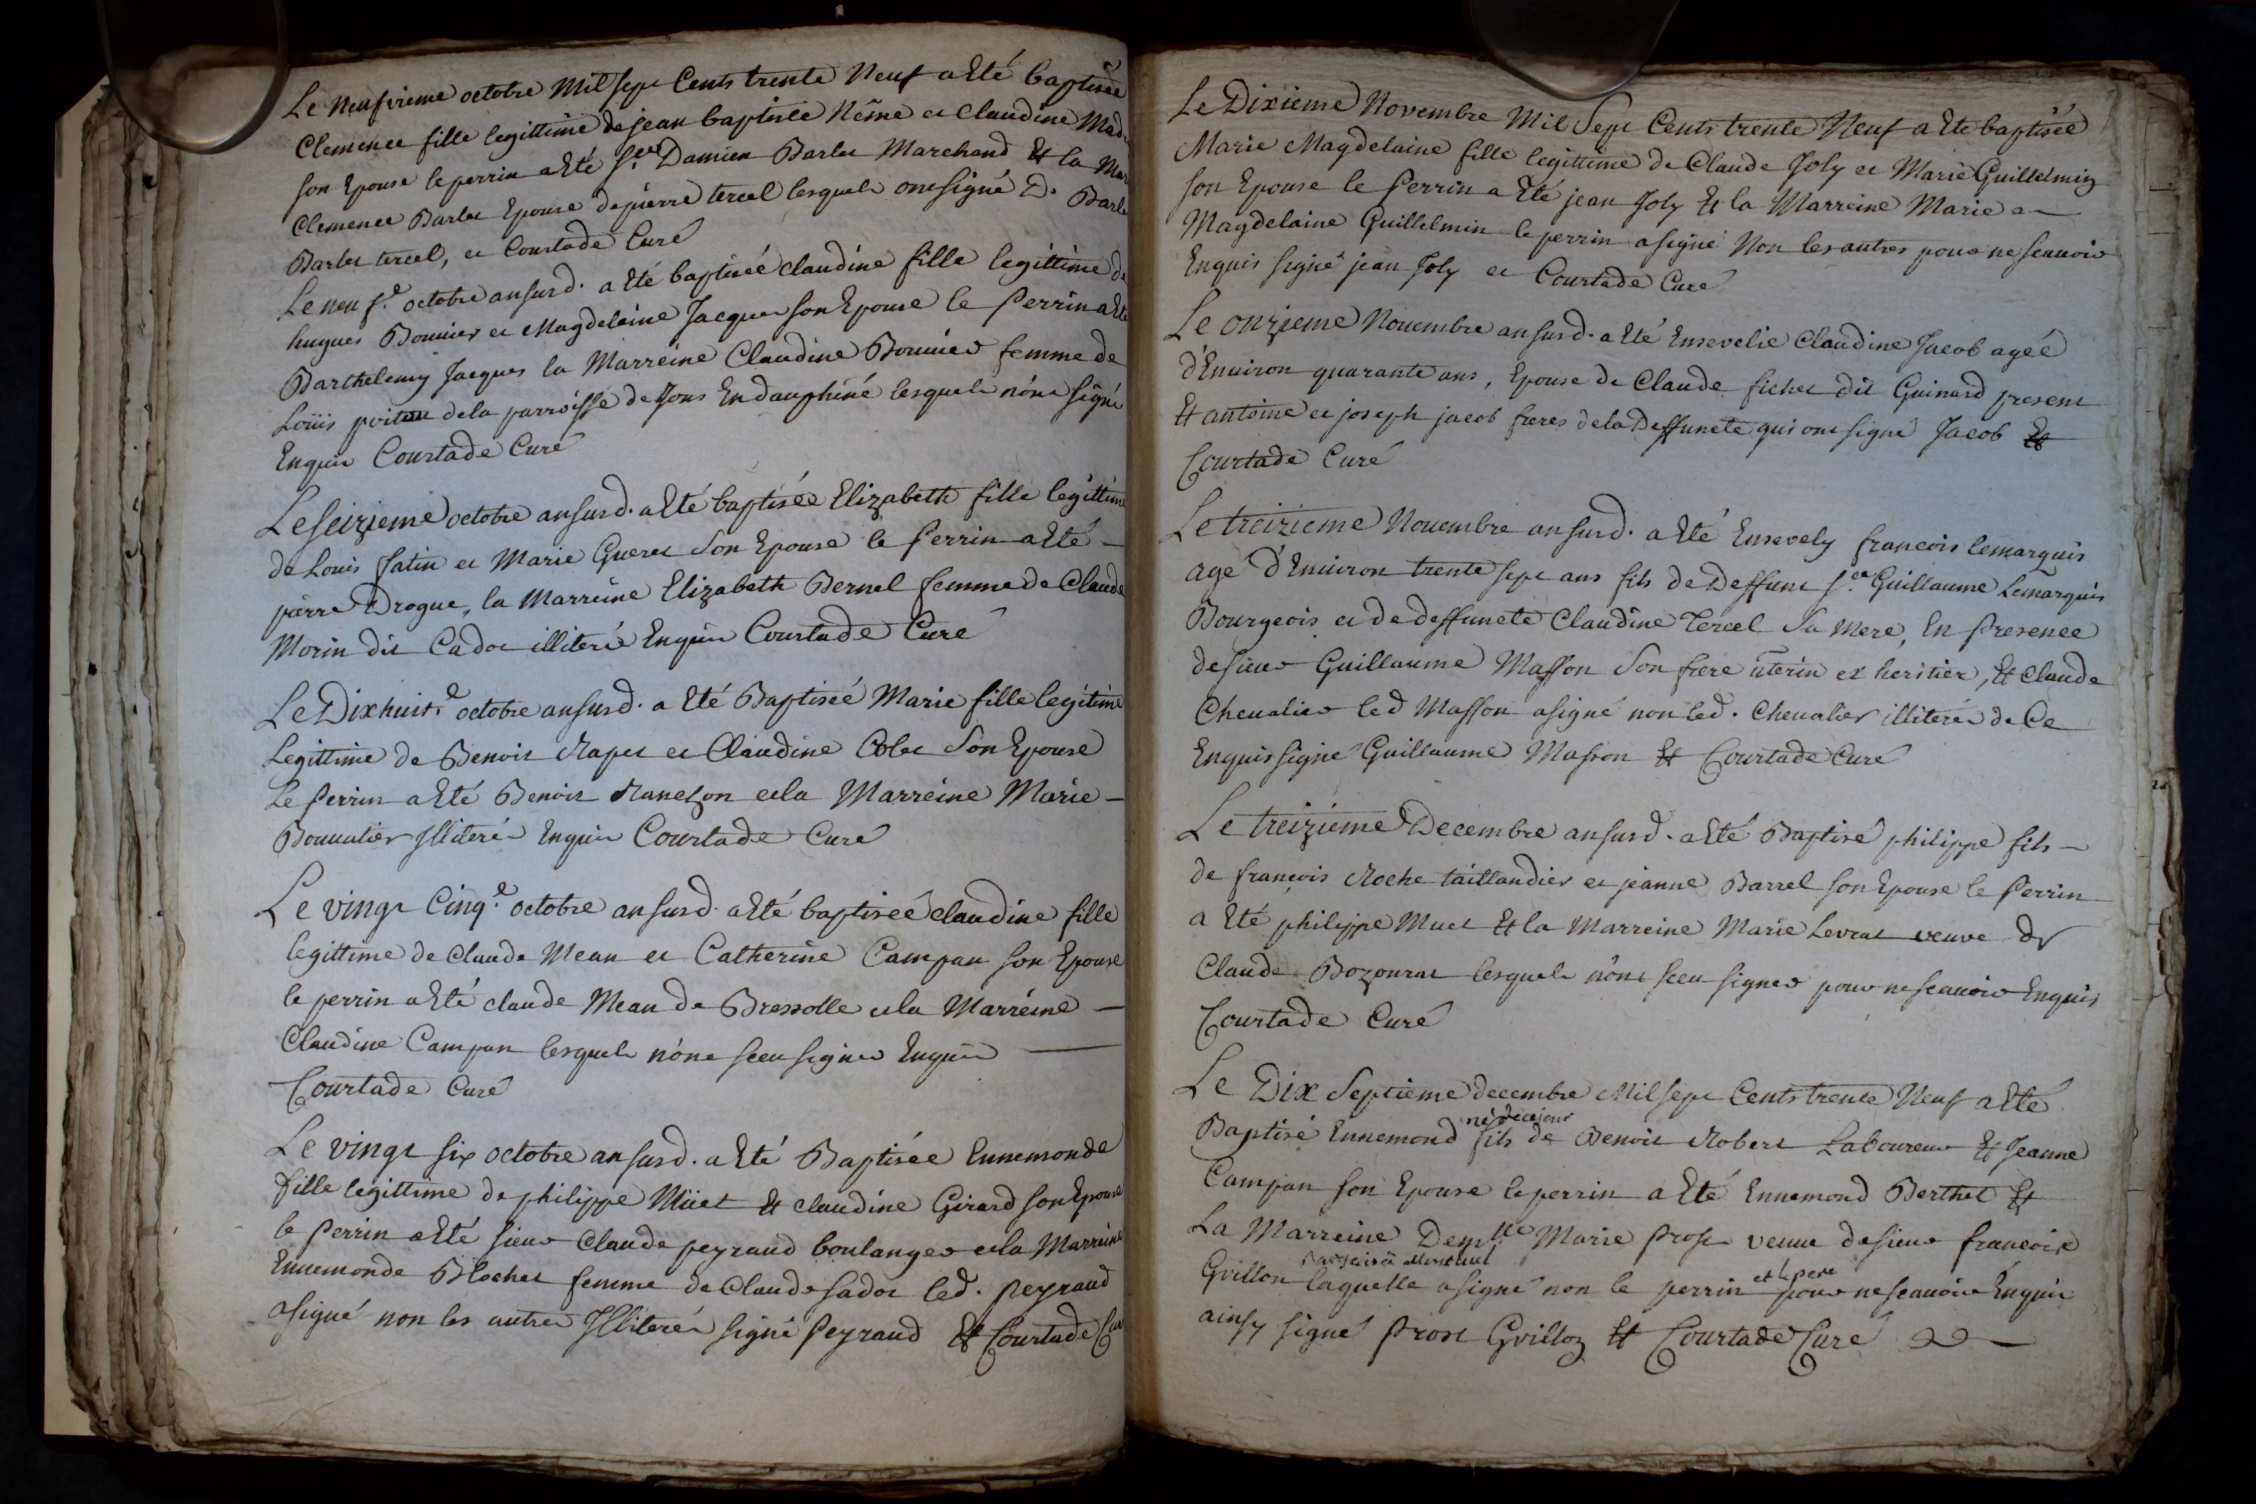 Le Neufvieme octobre Mil sept Cents trente Neuf a Eté baptisée
Clemence fille legittime de jean baptiste Nême et Claudine
son Epouse le perrin a Eté Sr. Damien Barlet Marchand Et la
Clemence Barlet Epouse de pierre tercel lesquels ont signé D.
Barlet tercel, et Courtade Curé
Le neuf.e octobre an susd. a Eté baptiseé claudine fille legittime de
hugues Bouvier et Magdeleine Jacques son Epouse le Perrin a Eté
Barthelemy Jacques la Marreine Claudine Bouvier femme de
Loüis de la parroisse de Jons En dauphiné lesquels n'ont signé
Enquis Courtade Curé
Le seizieme octobre an susd. a Eté baptisée Elizabeth fille legittime
de Louis Jatin et Marie Gueret Son Epouse le Perrin a Eté —
pierre Drogue, la Marreine Elizabeth Bernel femme de Claude
Morin dit Cadot illiterés Enquis Courtade Curé
Le Dixhuit.e octobre an susd. a Eté Baptiseé Marie fille legitime
Legittime de Benoit Rapet et Claudine Son Epouse
Le Perrin a Eté Benoit et la Marreine Marie —
Bouvatier Illiterés Enquis Courtade Curé
Le vingt Cinq.e octobre an susd. a Eté baptiseé claudine fille
legittime de Claude Mean et Catherine Campan son Epouse
le perrin a Eté claude Mean de Bressolle et la Marreine —
Claudine Campan lesquels n'ont sceu signer Enquis —
Courtade Curé
Le vingt six octobre an susd. a Eté Baptisée Ennemonde
fille legittime de philippe Müet Et claudine Girard son Epouse
le Perrin a Eté sieur Claude peyraud boulanger et la Marreine
Ennemonde Blochet femme de Claude sadot led. Peyraud
a signé non les autres Illiterés signé Peyraud Et Courtade Curé
Le Dixieme Novembre Mil Sept Cents trente Neuf a Ete baptiseé
Marie Magdelaine fille legittime de Claude Joly et Marie Guillelmin
son Epouse le Perrin a Eté jean Joly Et la Marreine Marie —
Magdelaine Guillelmin le perrin a signé Non les autres pour ne scauoir
Enquis signé jean Joly et Courtade Curé
Le onzieme Nouembre an susd. a Eté Ensevelie Claudine Jacob ageé
d'Enuiron quarante ans, Epouse de Claude fichet dit Guinard present
Et antoine et joseph jacob freres de la Deffuncte qui ont signé Jacob Et
Courtade Curé
Le treizieme Nouembre an susd. a Eté Ensevely francois lemarquis
agé d'Enuiron trente sept ans fils de Deffunt Sr. Guillaume Lemarquis
Bourgeois et de deffuncte Claudine Tercel Sa Mere, En Presence
de sieur Guillaume Masson Son frere uterin et heritier, Et Claude
Cheualier led Masson a signé non led. Cheualier illiterés de Ce
Enquis signé Guillaume Masson Et Courtade Curé
Le treiziéme Decembre an susd. a Eté Baptisé philippe fils —
de francois Roche taillandier et jeanne Barrel son Epouse le Perrin
a Eté philippe Muet Et la Marreine Marie Levrat veuve de
Claude Bozonnat lesquels n'ont sceu signer pour ne scauoir Enquis
Courtade Curé
Le Dix Septieme decembre Mil sept Cents trente Neuf a Eté
né de ce jour
Baptisé Ennemond fils de Benoit Robert Laboureur Et Jeanne
Campan son Epouse le perrin a Eté Ennemond Berthet Et
La Marreine Demlle Marie Prost veuve de sieur francois
Grillon laquelle a signé non le perrin et le pere pour ne scauoir Enquis
ainsy signé Prost Grilloz Et Courtade Curé